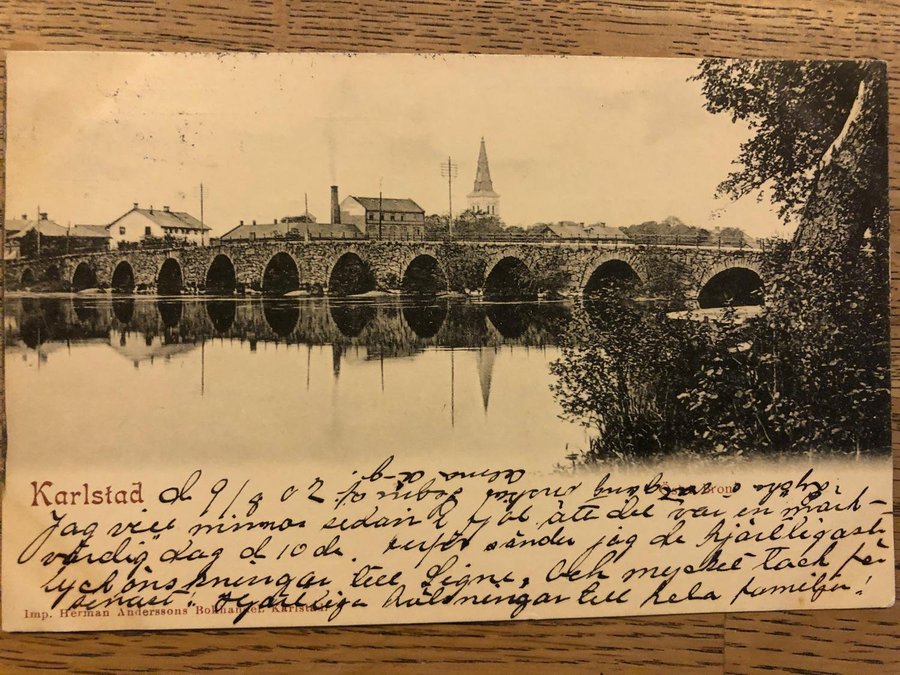 Karlstad d 9/8 02
Bron
Jag vill minnas sedan i fjol att det var en märk-
värdig dag d 10 de. Derför sänder jag de hjärtligaste
lyckönskningar till Signe, och mycket tack för
senast! Hjärtliga hälsningar till hela familjen!
Imp. Herman Anderssons Bokhandel. Karlstad